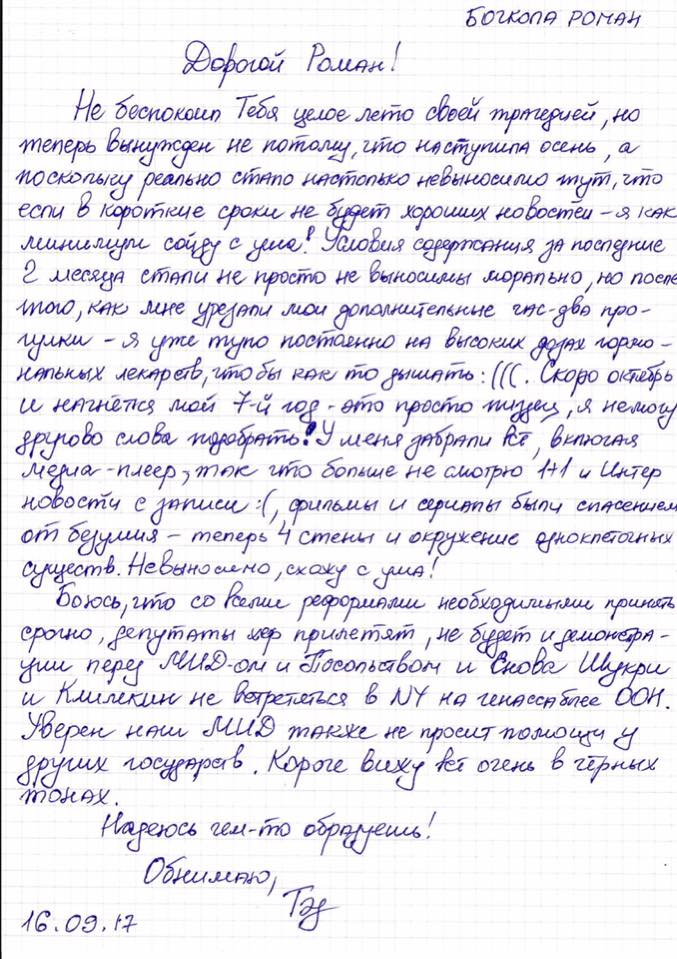 БОГКОЛА РОМАН
Дорогой Роман!
Не беспокоил Тебя целое лето своей трагедией, но
теперь вынужден не потому, что наступила осень, а
поскольку реально стало настолько невыносимо тут, что
если в короткие сроки не будет хороших новостей – я как
минимум сойду с ума! Условия содержания за последние
2 месяца стали не просто не выносимы морально, но после
того, как мне урезали мои дополнительные час-два про-
гулки – я уже тупо постоянно на высоких дозах гормо-
нальных лекарств, что бы как то дышать :(((. Скоро октябрь
и начнётся мой 7-й год – это просто пиздец, я не могу
другово слова подобрать! У меня забрали всё, включая
медиа-плеер, так что больше не смотрю 1+1 и Интер
новости с записи :(, фильмы и сериалы были спасением
от безумия – теперь 4 стены и окружение одноклеточных
существ. Невыносимо, схожу с ума!
Боюсь, что со всеми реформами необходимыми принять
срочно, депутаты хер прилетят, не будет и демонстра-
ции перед МИД-ом и Посольством и Снова Шукри
и Климкин не встретяться в NY на генассаблее ООН.
Уверен наш МИД также не просит помощи у
других государств. Короче вижу всё очень в чёрных
тонах.
Надеюсь чем-то обрадуешь!
Обнимаю,
Тэд
16.09.17